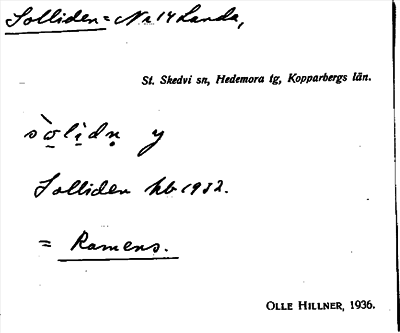 Solliden = Nr 14 Landa,
St. Skedvi sn, Hedemora tg, Kopparbergs län.
sò̱li̱dṇ y
Solliden hb 1932.
= Ramens.
OLLE HILLNER, 1936.